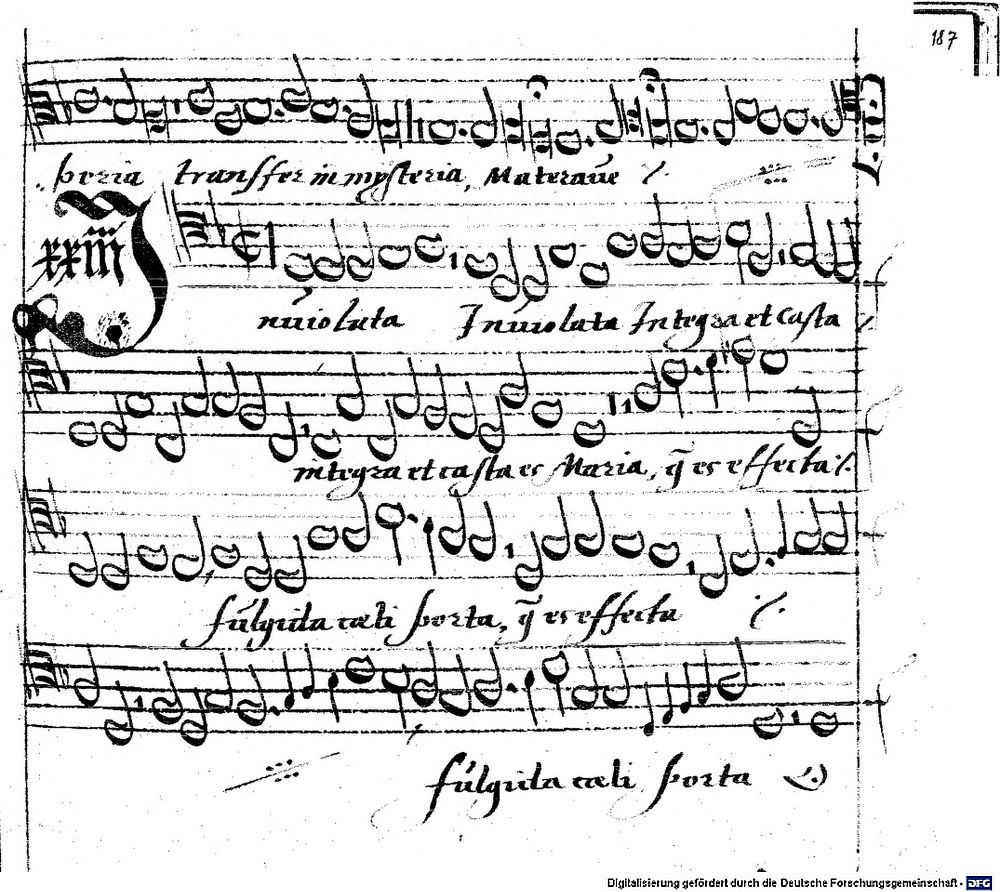 187
peria transfer in mysteria, Mater aūe ⁒
xxiiij
Inuiolata Inuiolata Integra et casta
integra et casta es Maria, q̃ es effecta ⁒
fulgida cæli porta, q̃ es effecta ⁒
fulgida cæli porta
Digitalisierung gefördert durch die Deutsche Forschungsgemeinschaft - DFG